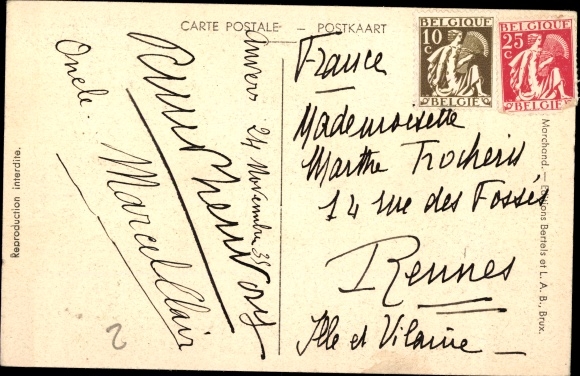 CARTE POSTALE — POSTKAART
BELGIQUE
10 C
BELGIE
BELGIQUE
25 C
BELGIE
Anvers 24 Novembre 35
Oncle.
Marcel Clair
France
Mademoiselle
Marthe Trocheris
14 rue des Fossés
Rennes
Ille et Vilaine
Reproduction interdite.
Marchand — Editions Bertels et L. A. B., Brux.
2